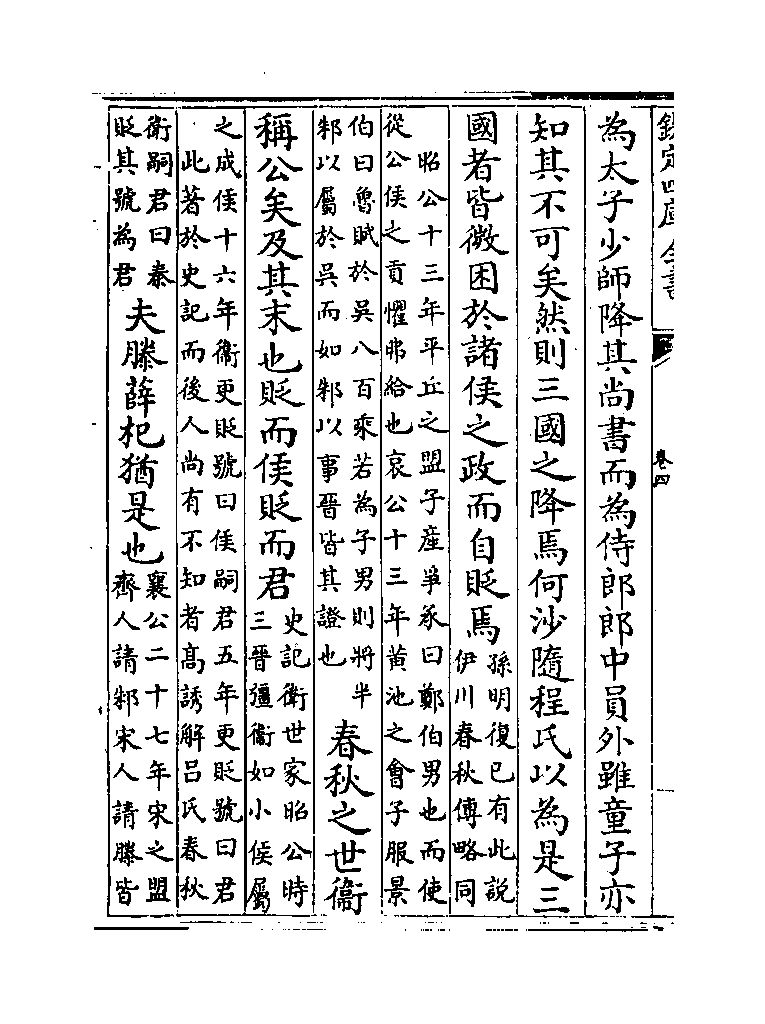 欽定四庫全書
卷四
為太子少師降其尚書而為侍郎郎中員外雖童子亦
知其不可矣然則三國之降焉何沙隨程氏以為是三
國者皆微困於諸侯之政而自貶焉
孫明復已有此說
伊川春秋傳略同
昭公十三年平丘之盟子產爭承曰鄭伯男也而使
從公侯之貢懼弗給也哀公十三年黃池之會子服景
伯曰魯賦於吳八百乘若為子男則將半
邾以屬於吳而如邾以事晉皆其證也
春秋之世衞
稱公矣及其末也貶而侯貶而君
史記衞世家昭公時
三晉彊衞如小侯屬
之成侯十六年衞更貶號曰侯嗣君五年更貶號曰君
此著於史記而後人尚有不知者高誘解吕氏春秋
衞嗣君曰秦
貶其號為君
夫滕薛杞猶是也
襄公二十七年宋之盟
齊人請邾宋人請滕皆